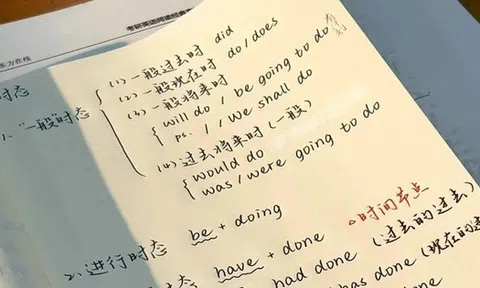 考研英语阅读
东方在线
时态
(1) 一般过去时 did
(2) 一般现在时 do/does
(3) 一般将来时
will do / be going to do
ps: I / we shall do
1. "一般"时态
(4) 过去将来时 (一般)
would do
was/were going to do
2. 进行时态 be + doing
时间节点
态 have + done
had done (过去的过去)
has done (现在的过
done